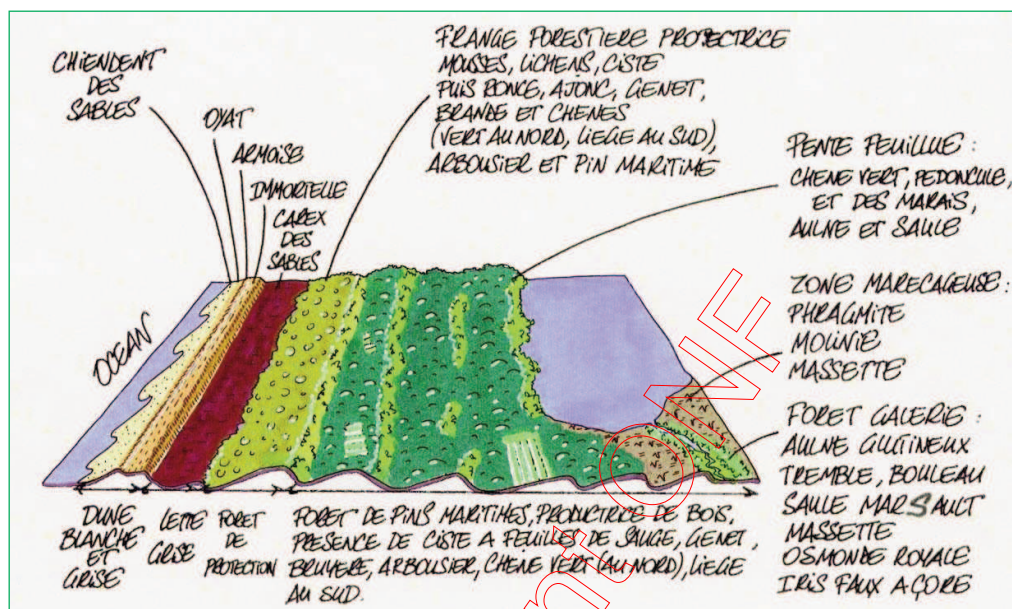 CHIENDENT
DES
SABLES
OYAT
ARMOISE
IMMORTELLE
CAREX
DES
SABLES
FRANGE FORESTIERE PROTECTRICE
MOUSSES, LICHENS, CISTE
PUIS RONCE, AJONC, GENET,
BRANDE ET CHENES
(VERT AU NORD, LIEGE AU SUD),
ARBOUSIER ET PIN MARITIME
PENTE FEUILLUE :
CHENE VERT, PEDONCULE,
ET DES MARAIS,
AULNE ET SAULE
ZONE MARECAGEUSE :
PHRAGMITE
MOLINIE
MASSETTE
FORET GALERIE :
AULNE GLUTINEUX
TREMBLE, BOULEAU
SAULE MARSAULT
MASSETTE
OSMONDE ROYALE
IRIS FAUX AÇORE
OCEAN
DUNE
BLANCHE
ET
GRISE
LETTE
GRISE
FORET
DE
PROTECTION
FORET DE PINS MARITIMES, PRODUCTRICE DE BOIS,
PRESENCE DE CISTE A FEUILLES DE SAUGE, GENET,
BRUYERE, ARBOUSIER, CHENE VERT (AU NORD), LIEGE
AU SUD.
nt ONF